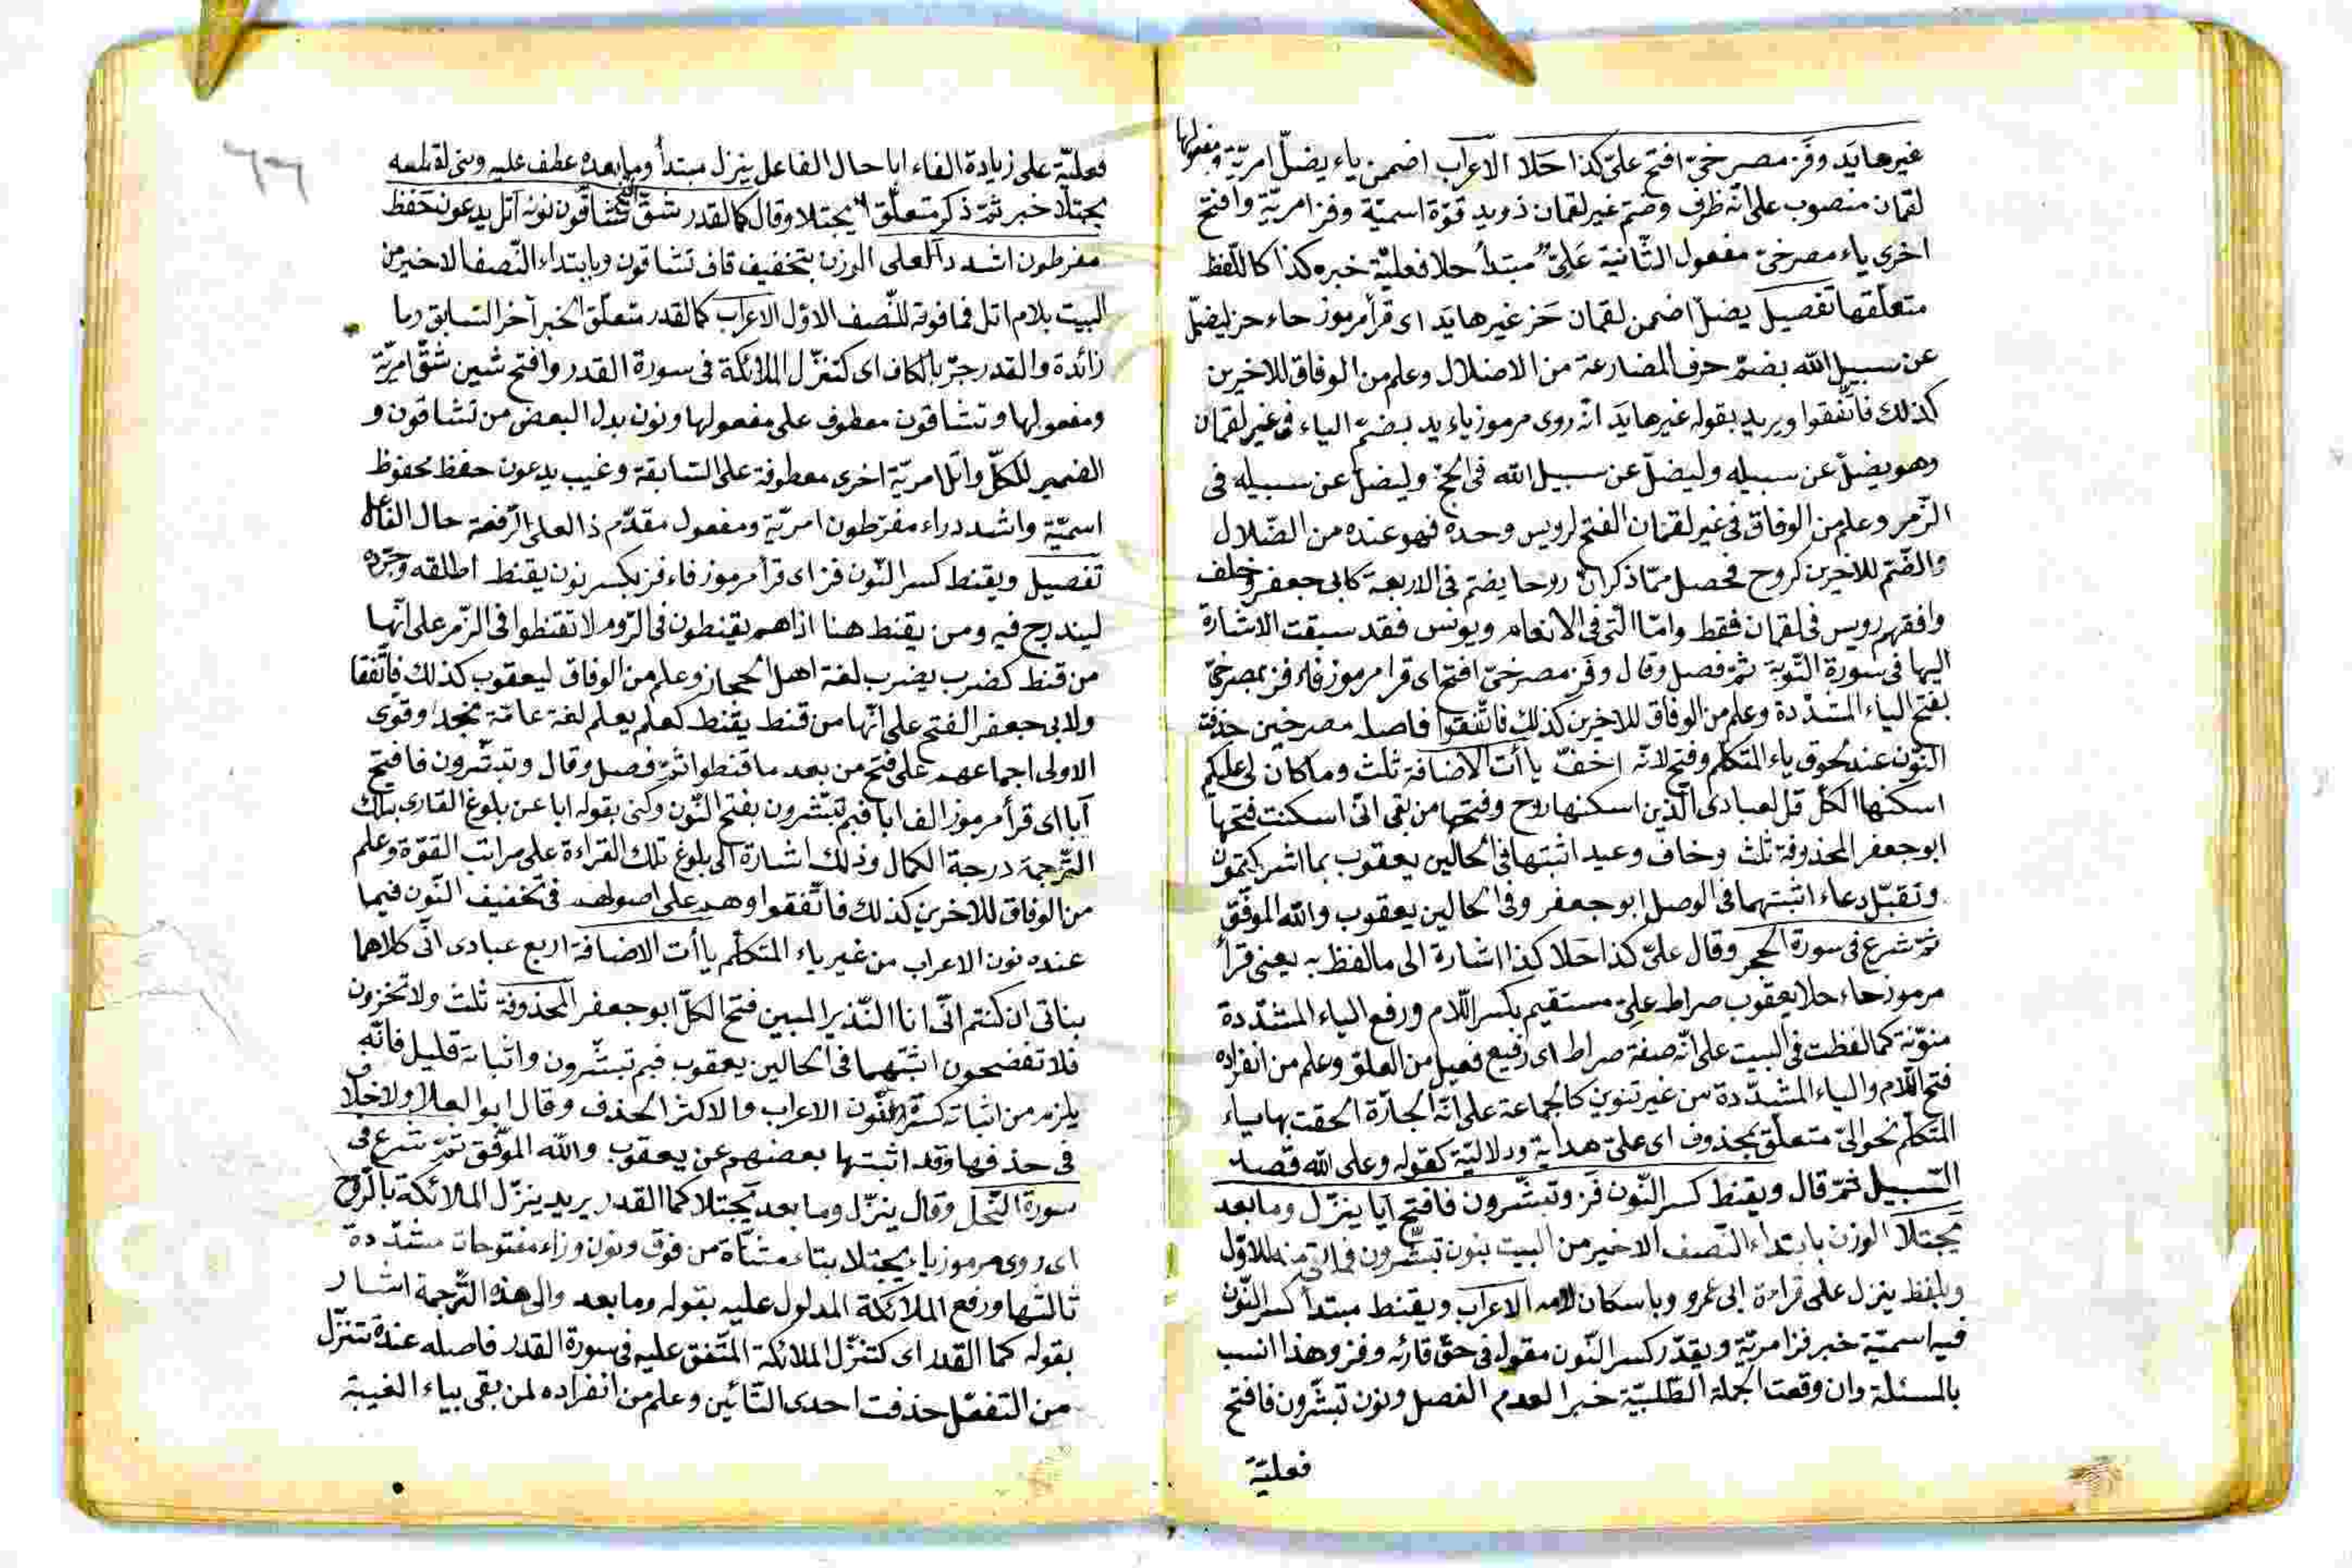 غيرها يَد وفَز مصرخيّ افتح عليّ كذا حَلا الاعراب اضمن ياء يضلّ امريّة ومفعولها
لقمان منصوب على انّه ظرف وضمّ غير لقمان ذو يد قوّة اسميّة وفز امريّة وافتح
اخرى ياء مصرخيّ مفعول الثّانية عَليّ مبتدأ حلا فعليّة خبره كذا كاللّفظ
متعلّقها تفصيل يضلّ اضممن لقمان حَز غيرها يَد اى قرأ مرموز حاء حز ليضلّ
عن سبيل الله بضمّ حرف المضارعة من الاضلال وعلم من الوفاق للاخرين
كذلك فاتّفقوا ويريد بقوله غيرها يَد انّه روى مرموز ياء يد بضمّ الياء فى غير لقمان
وهو يضلّ عن سبيله وليضلّ عن سبيل الله فى الحجّ وليضلّ عن سبيله فى
الزّمر وعلم من الوفاق فى غير لقمان الفتح لرويس وحده فهو عنده من الضّلال
والضّمّ للاخرين كروح فحصل ممّا ذكر انّ روحا يضمّ فى الاربعة كابى جعفر وخلف
وافقهم رويس فى لقمان فقط وامّا الّتى فى الانعام ويونس فقد سبقت الاشارة
اليها فى سورة التّوبة ثمّ فصل وقال وفَز مصرخيّ افتح اى قرا مرموز فاء فز بمصرخيّ
بفتح الياء المشدّدة وعلم من الوفاق للاخرين كذلك فاتّفقوا فاصله مصرخين حذفت
النّون عند لحوق ياء المتكلّم وفتح لانّه اخفّ ياأت الاضافة ثلث وما كان لى عليكم
اسكنها الكلّ قل لعبادى الّذين اسكنها روح وفتحها من بقى انّى اسكنت فتحها
ابو جعفر المحذوفة ثلث وخاف وعيد اثبتها فى الحالين يعقوب بما اشركتمون
وتقبّل دعاء اثبتهما فى الوصل ابو جعفر وفى الحالين يعقوب والله الموفّق
ثمّ شرع فى سورة الحجر وقال عليّ كذا حَلا كذا اشارة الى ما لفظ به يعنى قرأ
مرموز حاء حلا يعقوب صراط عليّ مستقيم بكسر اللّام ورفع الياء المشدّدة
منوّنة كما لفظت فى البيت على انّه صفة صراط اى رفيع فعيل من العلوّ وعلم من انفراده
فتح اللّام والياء المشدّدة من غير تنوين كالجماعة على انّه الجارّة الحقت بها ياء
المتكلّم نحو اليّ متعلّق بمحذوف اى عليّ هداية ودلاليّة كقوله وعلى الله قصد
السّبيل ثمّ قال ويقنط كسر النّون فَز وتبشّرون فافتح ابا ينزّل وما بعد
يجتلا الوزن بابتداء النّصف الاخير من البيت بنون تبشّرون فما للاوّل
وبلفظ ينزل على قراءة ابى عمرو وباسكان لامه الاعراب ويقنط مبتدأ كسر النّون
فيه اسميّة خبر فز امريّة ويقدّر كسر النّون مقول فى حقّ قارئه وفز وهذا انسب
بالمسئلة وان وقعت الجملة الطّلبيّة خبرا لعدم الفصل ونون تبشّرون فافتح
فعليّة
٦٦
فعليّة على زيادة الفاء ابا حال الفاعل ينزل مبتدأ وما بعده عطف عليه
يجتلا خبر ثمّ ذكر متعلّق يجتلا وقال كالقدر شقّ تشاقّون نونه اتل يدعون حفظ
مفرطون اشدد العلى الوزن بتخفيف قاف تشاقون وبابتداء النّصف الاخير من
البيت بلام اتل فما فوقه للنّصف الاوّل الاعراب كما القدر متعلّق الخبر آخر السّابق وما
زائدة والقدر جرّ بالكاف اى كتنزّل الملائكة فى سورة القدر وافتح شين شقّ امريّة
ومفعولها وتشاقون معطوف على مفعولها ونون بدل البعض من تشاقون و
الضمير للكلّ واتل امريّة اخرى معطوفة على السّابقة وغيب يدعون حفظ محفوظ
اسميّة واشدد راء مفرّطون امريّة ومفعول مقدّم ذا العلى الرّفعة حال الفاعل
تفصيل ويقنط كسر النّون فز اى قرأ مرموز فاء فز بكسر نون يقنط اطلقه وجرّده
ليندرج فيه ومن يقنط هنا اذا هم يقنطون فى الرّوم لا تقنطوا فى الزّمر على انّها
من قنط كضرب يضرب لغة اهل الحجاز وعلم من الوفاق ليعقوب كذلك فاتّفقا
ولابى جعفر الفتح على انّها من قنط يقنط كعلم يعلم لغة عامّة نجد وقوى
الاولى اجماعهم على فتح من بعد ما قنطوا ثمّ فصل وقال وتبشّرون فافتح
ابا اى قرأ مرموز الف ابا فبم تبشّرون بفتح النّون وكنى بقوله ابا عن بلوغ القارى بتلك
التّرجمة درجة الكمال وذلك اشارة الى بلوغ تلك القراءة على مراتب القوّة وعلم
من الوفاق للاخرين كذلك فاتّفقوا وهم على اصولهم فى تخفيف النّون فيما
عنده نون الاعراب من غير ياء المتكلّم ياأت الاضافة اربع عبادى انّى كلاهما
بناتى ان كنتم انّى انا النّذير المبين فتح الكلّ ابو جعفر المحذوفة ثلث ولا تخزون
فلا تفضحون اثبتهما فى الحالين يعقوب فبم تبشّرون واثباته قليل فانّه
يلزم من اثباته كسرة النّون الاعراب والاكثر الحذف وقال ابو العلا ولا خلاف
فى حذفها وقد اثبتها بعضهم عن يعقوب والله الموفّق ثمّ شرع فى
سورة النّحل وقال ينزّل وما بعد يجتلا كما القدر يريد ينزّل الملائكة بالرّوح
اى روى مرموز ياء يجتلا بتاء مثنّاة من فوق ونون وزاء مفتوحات مشدّدة
ثالثها ورفع الملائكة المدلول عليه بقوله وما بعد والى هذه التّرجمة اشار
بقوله كما القدر اى كتنزّل الملائكة المتّفق عليه فى سورة القدر فاصله عنده تتنزّل
من التفعّل حذفت احدى التّائين وعلم من انفراده لمن بقى بياء الغيبة